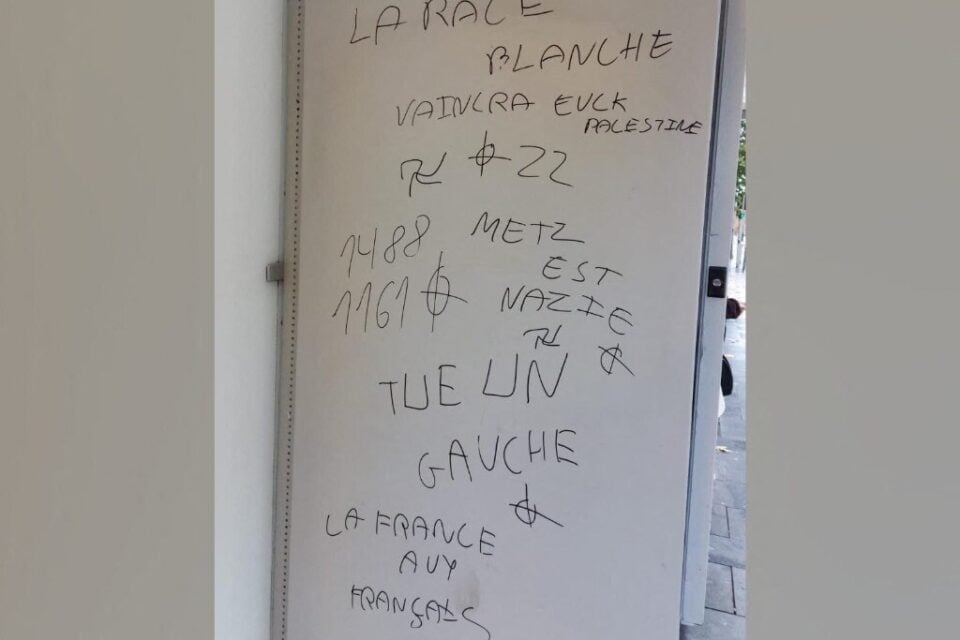 LA RACE
BLANCHE
VAINCRA EUCK
PALESTINE
22
1488 METZ
EST
1161 NAZIE
TUE UN
GAUCHE
LA FRANCE
AUX
FRANÇAIS